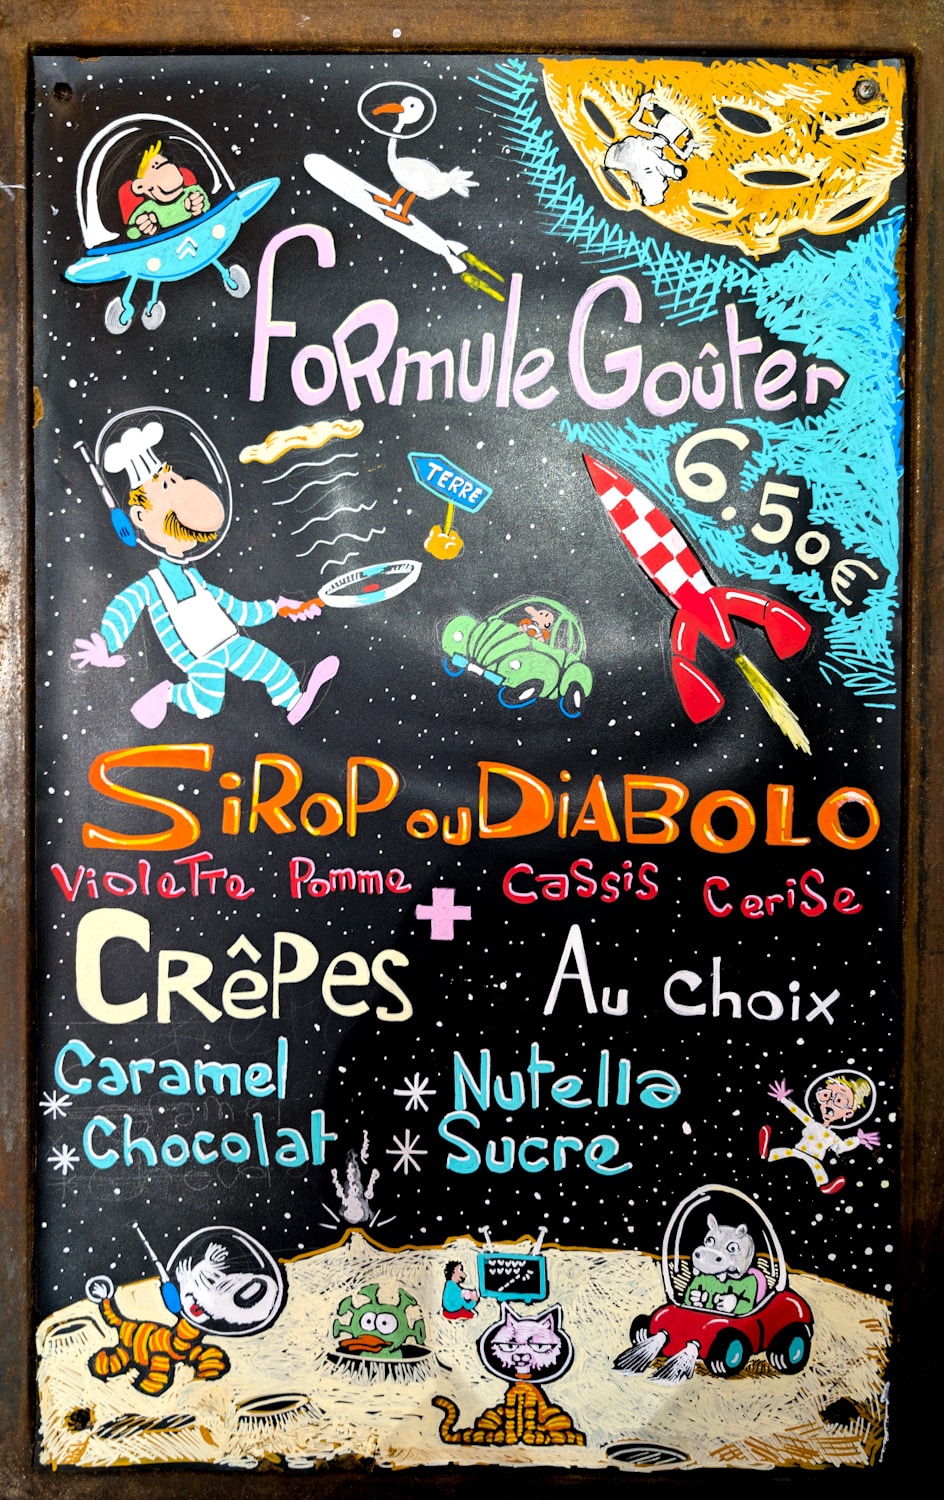 Formule Goûter
6.50€
TERRE
SiRoP ou DiABOLO
Violette Pomme Cassis Cerise
+
CRêPes Au choix
Caramel * Nutella
* Chocolat * Sucre
*